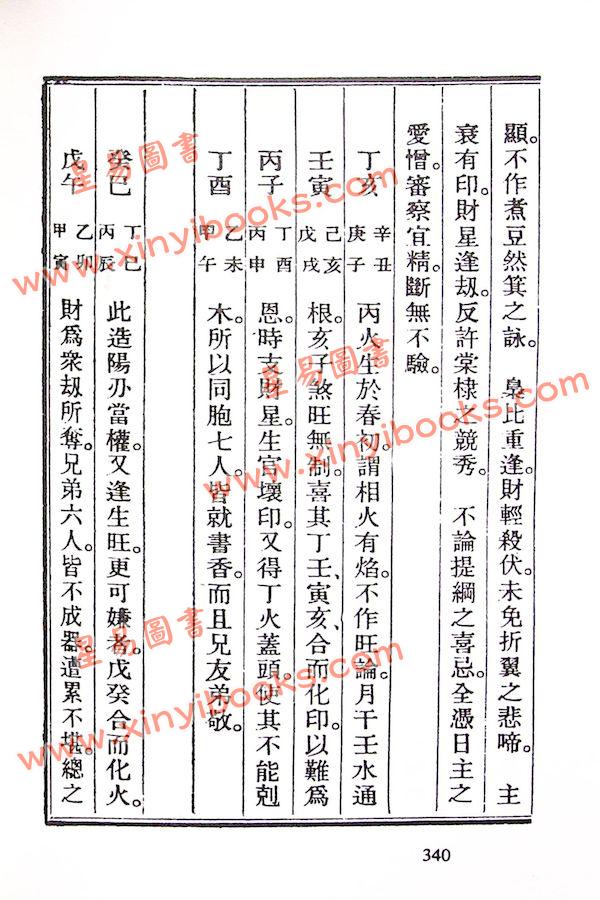 顯。不作煮豆然箕之詠。　梟比重逢。財輕殺伏。未免折翼之悲啼。　主
衰有印。財星逢劫。反許棠棣之競秀。　不論提綱之喜忌。全憑日主之
愛憎。審察宜精。斷無不驗。
丁亥　辛丑　庚子　丙火生於春初。謂相火有焰。不作旺論。月干壬水通
壬寅　己亥　戊戌　根。亥子煞旺無制。喜其丁壬、寅亥、合而化印。以難爲
丙子　丁酉　丙申　恩。時支財星。生官壞印。又得丁火蓋頭。使其不能剋
丁酉　乙未　甲午　木。所以同胞七人。皆就書香。而且兄友弟敬。
癸巳　丁巳　丙辰　此造陽刃當權。又逢生旺。更可嫌者。戊癸合而化火。
戊午　乙卯　甲寅　財爲衆劫所奪。兄弟六人。皆不成器。遭累不堪。總之
340
星易圖書
www.xinyibooks.com
星易圖書
www.xinyibooks.com
星易圖書
www.xinyibooks.com